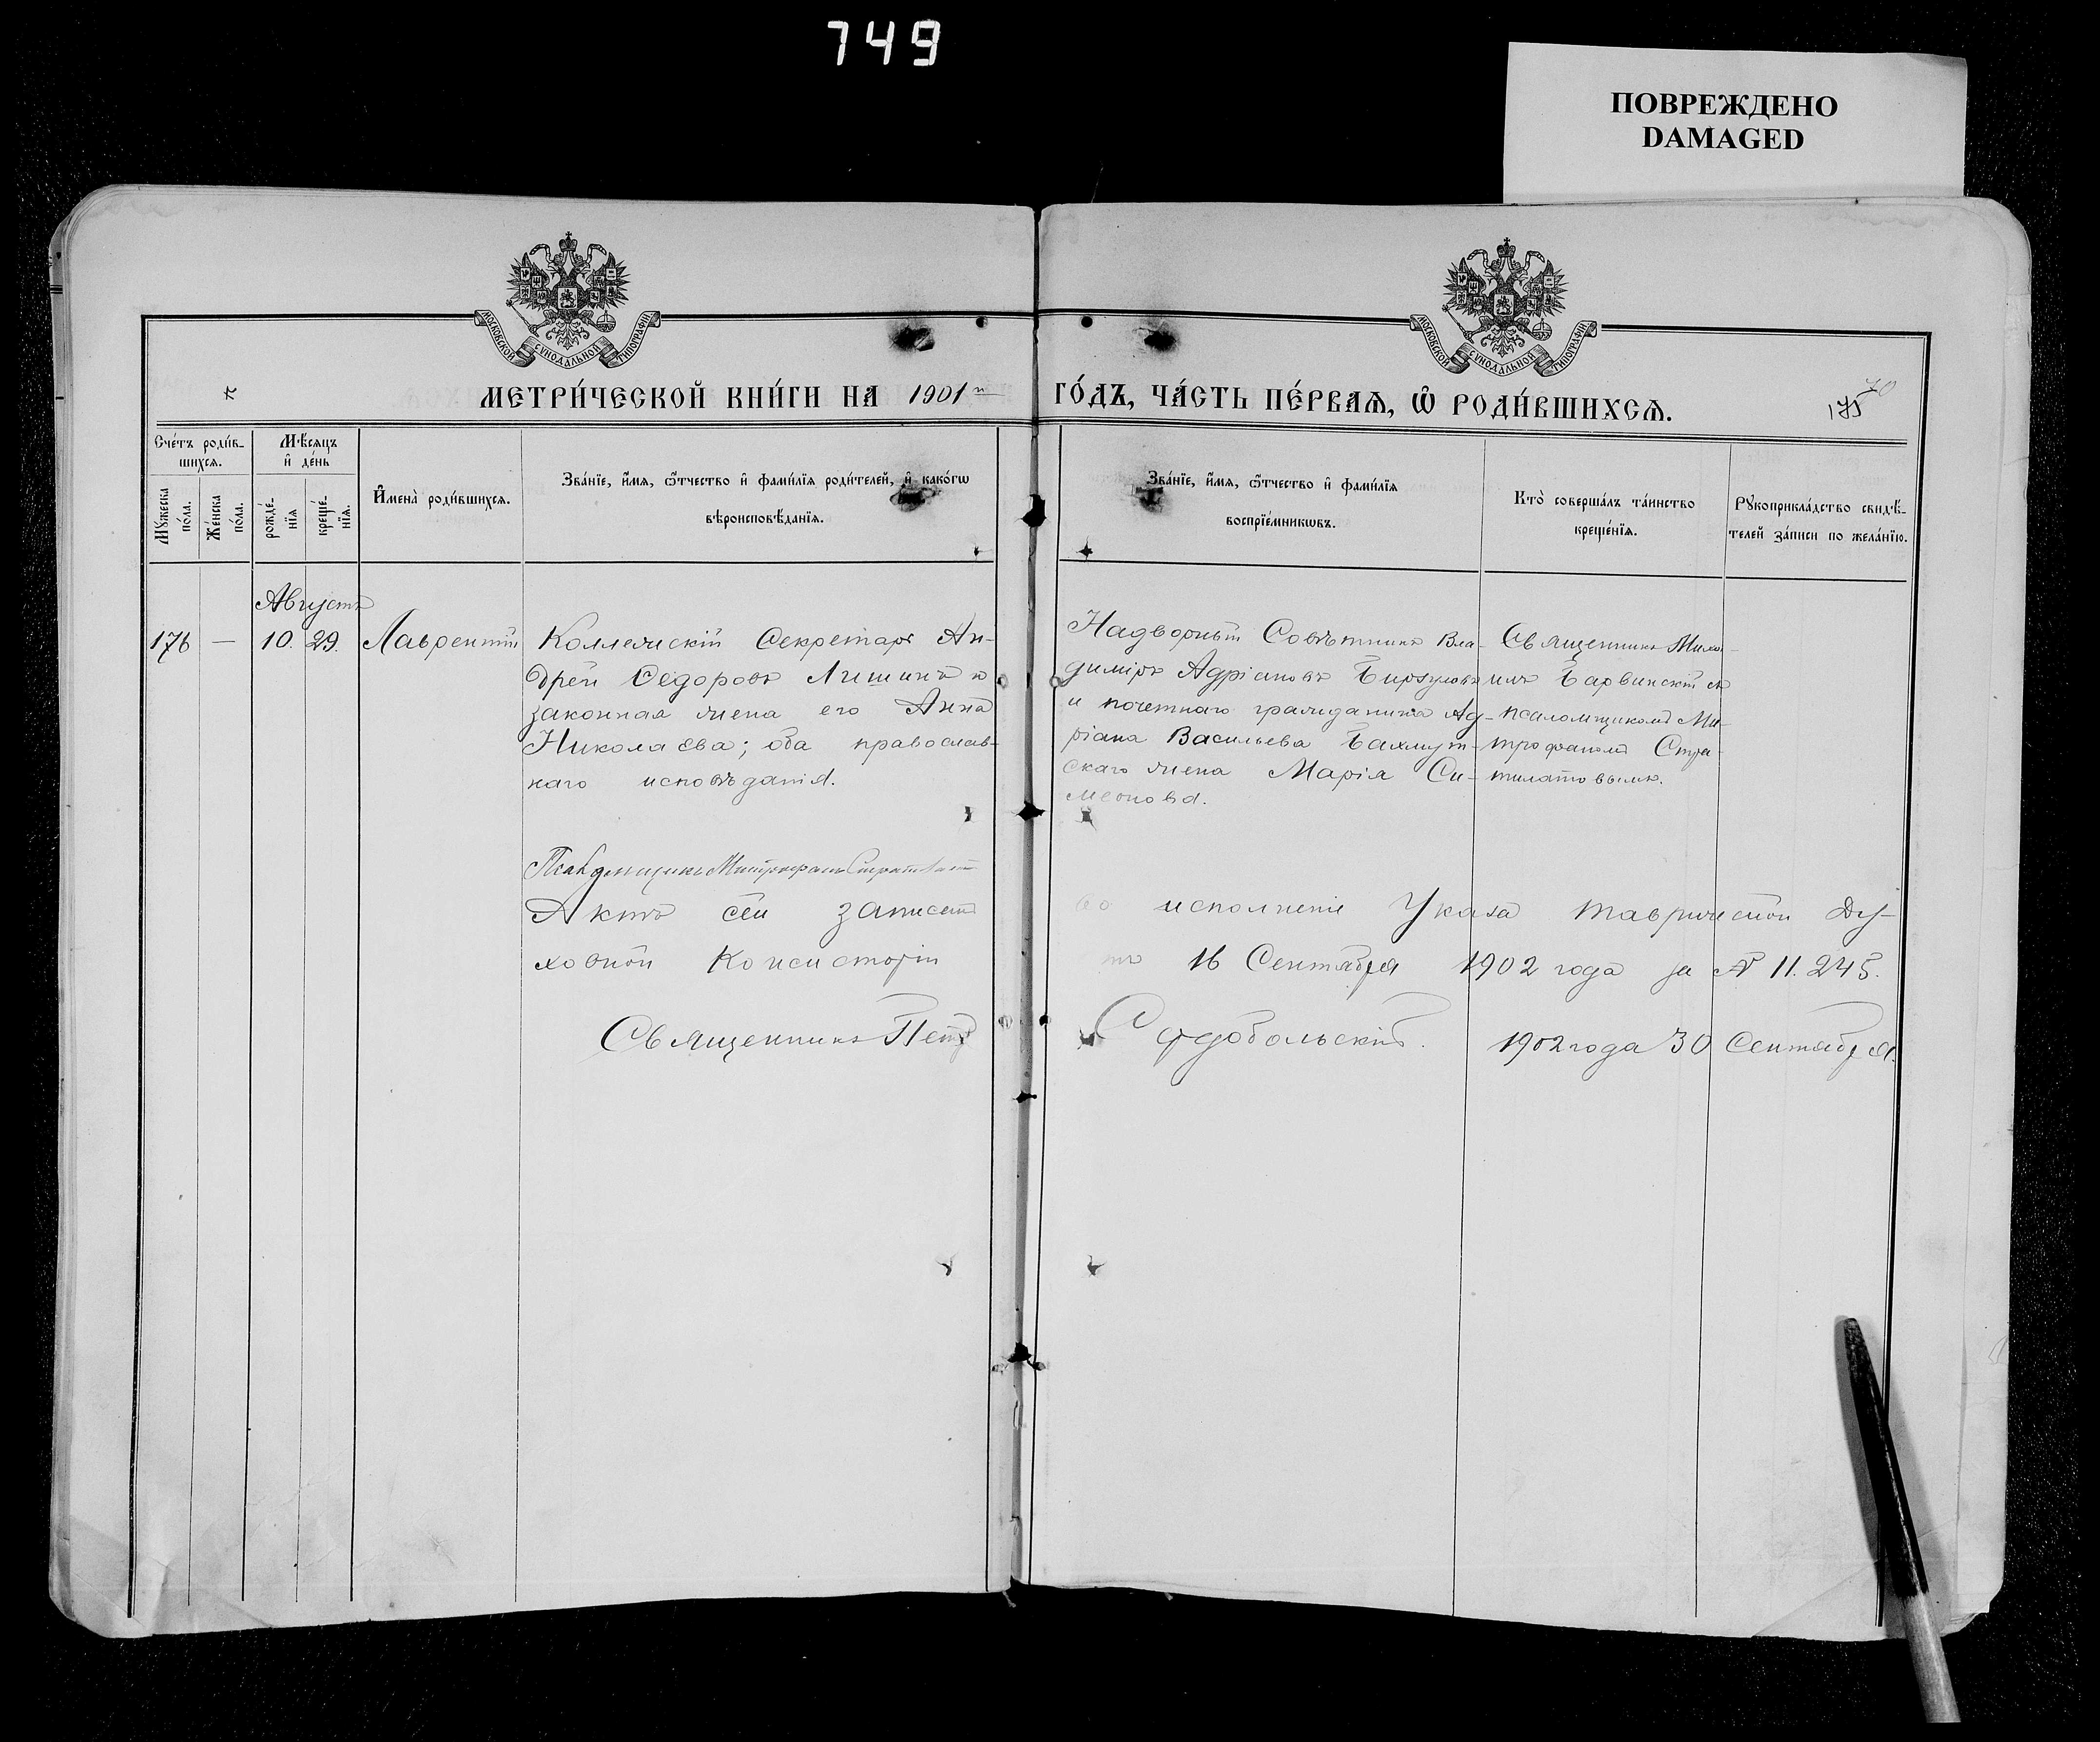 749
ПОВРЕЖДЕНО
DAMAGED
МОСКОВСКОЙ СУНОДАЛЬНОЙ ТИПОГРАФІИ
МОСКОВСКОЙ СУНОДАЛЬНОЙ ТИПОГРАФІИ
МЕТРИ́ЧЕСКОЙ КНИ́ГИ НА 1901 й
ГО́ДЪ, ЧА́СТЬ ПЕ́РВАѦ, Ѡ҆ РОДИ́ВШИХСѦ.
175
70
Сче́тъ роди́в-
шихсѧ.
Мꙋ́жеска
по́ла.
Же́нска
по́ла.
Мѣ́сѧцъ
и҆ де́нь
рожде́-
нїѧ
креще́-
нїѧ.
И҆мена̀ роди́вшихсѧ.
Зва́нїе, и҆́мѧ, ѻ҆́тчество и҆ фами́лїѧ роди́телей, и҆ како́гѡ
вѣроисповѣ́данїѧ.
Зва́нїе, и҆́мѧ, ѻ҆́тчество и҆ фами́лїѧ
воспрїе́мникѡвъ.
Кто̀ соверша́лъ та́инство
креще́нїѧ.
Рꙋкоприкла́дство свидѣ́-
телей за́писи по жела́нїю.
Августъ
176 — 10. 29. Лаврентій
Коллежскій Секретарь Ан-
дрей Ѳедоровъ Лишинъ и
законная жена его Анна
Николаева; оба православ-
наго исповѣданія.
Надворный Совѣтникъ Вла-
димiръ Адріановъ
и почетнаго гражданина Ад-
ріана Васильева Бахмут-
скаго жена Марія Си-
меонова.
Священникъ
Барвинскій съ
псаломщикомъ Ми-
трофаномъ Стра-
тилатовымъ.
Псаломщикъ Митрофанъ Стратилатовъ
Актъ сей записанъ во исполненіе Указа Таврической Ду-
ховной Консисторіи отъ 16 Сентября 1902 года за № 11.245.
Священникъ Петръ Сердобольскій. 1902 года 30 Сентября.